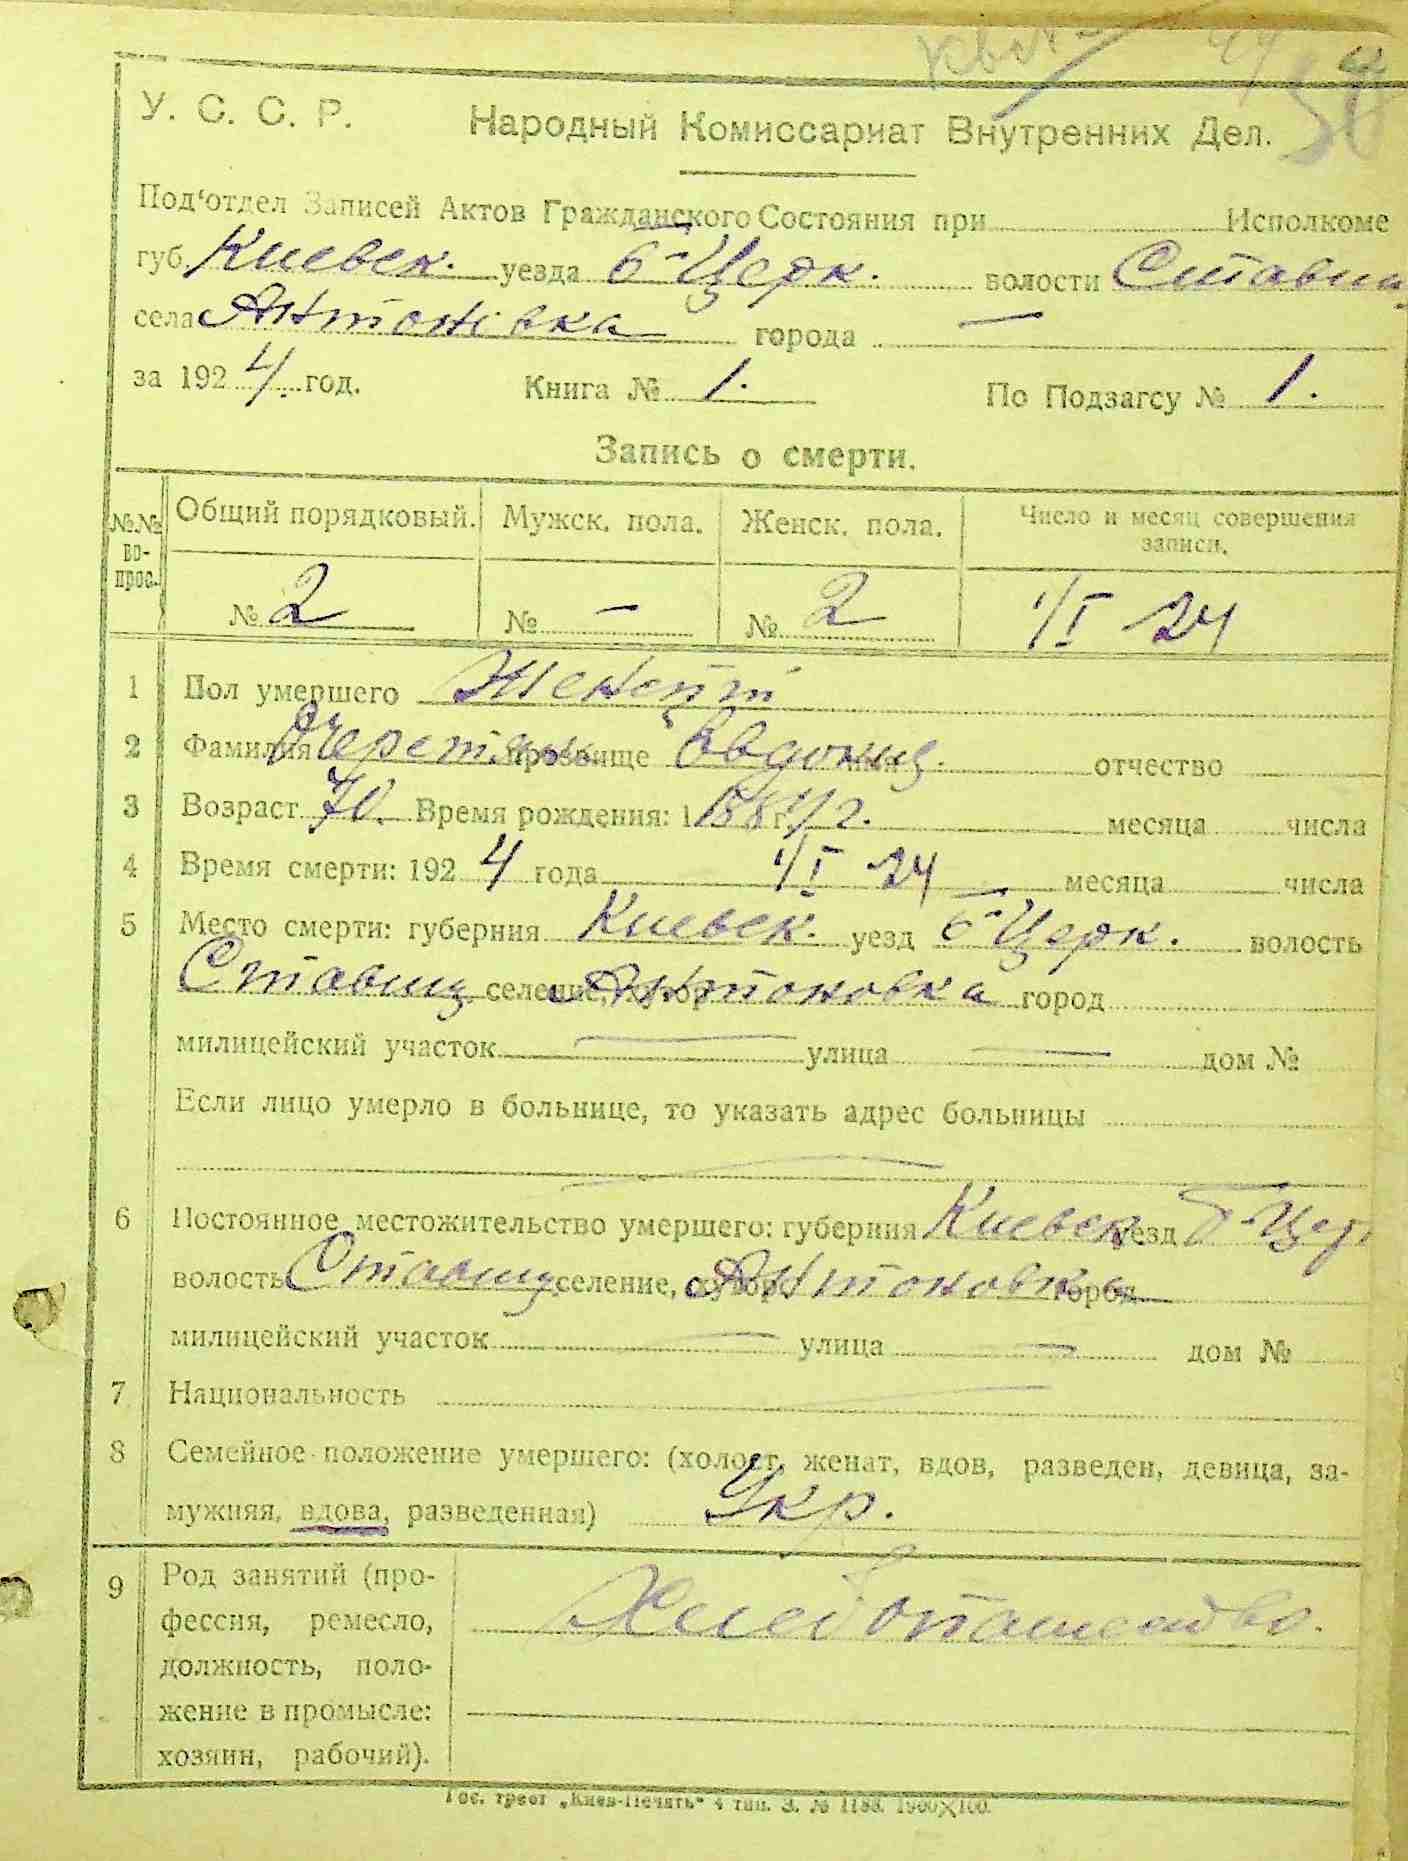 У. С. С. Р. Народный Комиссариат Внутренних Дел.
Под'отдел Записей Актов Гражданского Состояния при Исполкоме
губ. Киевск. уезда б-Церк. волости Ставищ
села Антонівка города —
за 1924 год. Книга № 1. По Подзагсу № 1.
Запись о смерти.
№№ вопрос. Общий порядковый. Мужск. пола. Женск. пола. Число и месяц совершения записи.
№ 2 № — № 2 1/I 24
1 Пол умершего
2 Фамилия прозвище Євдокия отчество
3 Возраст 70. Время рождения: 1 г. месяца числа
4 Время смерти: 1924 года 1/I 24 месяца числа
5 Место смерти: губерния Киевск. уезд б-Церк. волость
Ставищ селение, хутор Антоновка город
милицейский участок — улица — дом №
Если лицо умерло в больнице, то указать адрес больницы
6 Постоянное местожительство умершего: губерния Киевск уезд Б-Цер
волость Ставищ селение, хутор Антоновка город
милицейский участок — улица — дом №
7 Национальность —
8 Семейное положение умершего: (холост, женат, вдов, разведен, девица, за-
мужняя, вдова, разведенная) Укр.
9 Род занятий (про-
фессия, ремесло, Хлебопашество.
должность, поло-
жение в промысле:
хозяин, рабочий).
Гос. трест „Киев-Печать“ 4 тип. З. № 1188. 1900×100.